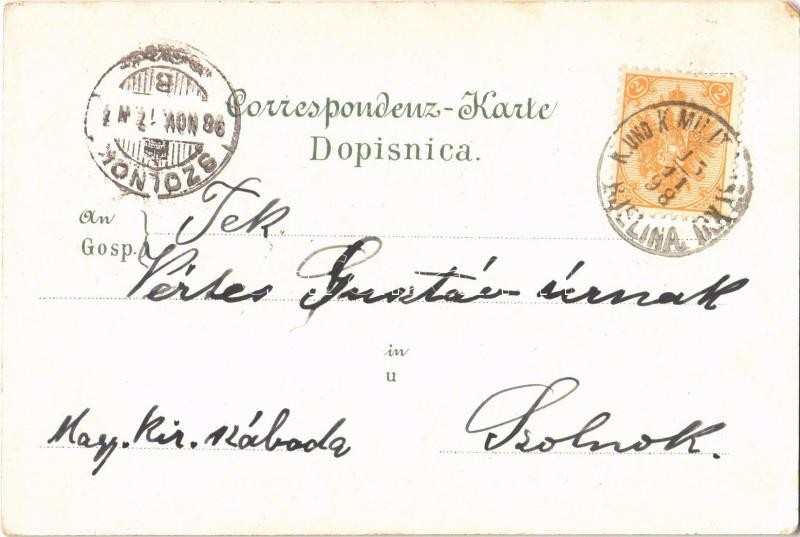 SZOLNOK
98 NOV. 17. N 7
B
Correspondenz-Karte
Dopisnica.
2 2
K. UND K. MILIT. POST
BJELINA.
15
11
98
An
Gosp.
Tek.
Vértes Gusztáv úrnak
in
u
Magy. Kir. táboda
Szolnok.